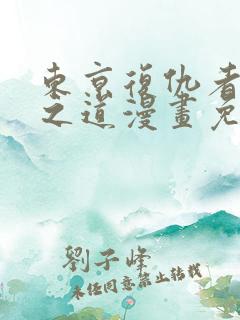 東京復仇者
之道漫畫免
劉子峰
未经同意禁止转载